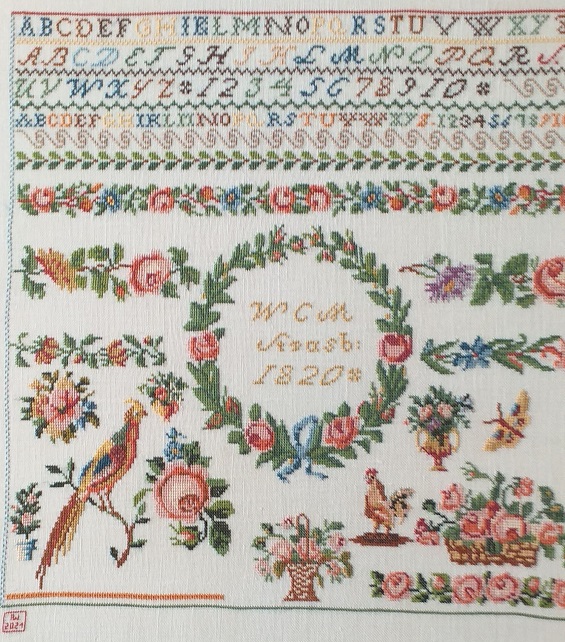 ABCDEFGHIKLMNOPQRSTUVWXY
ABCDEFGHIKLMNOPQR
UVWXYZ*1234567891O*
ABCDEFGHIKLMNOPQRSTUVWXYZ.123456789
WCM
1820*
2021